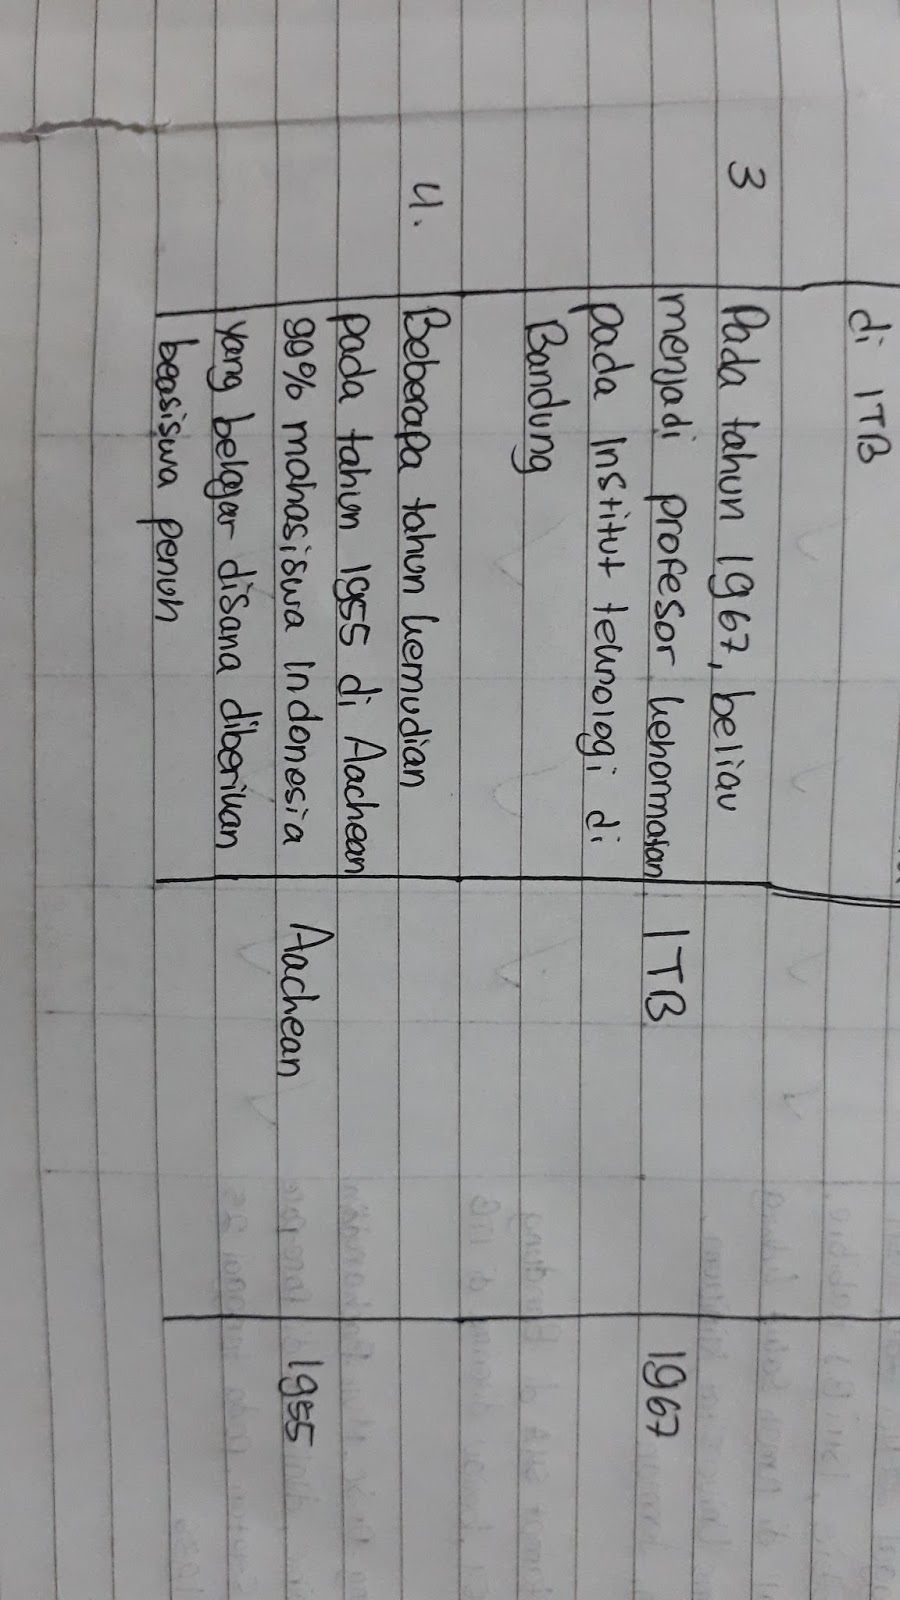 di ITB
3 Pada tahun 1967, beliau
menjadi profesor kehormatan ITB 1967
pada Institut teknologi di
Bandung
4. Beberapa tahun kemudian
pada tahun 1955 di Aachean
99% mahasiswa Indonesia Aachean 1955
yang belajar disana diberikan
beasiswa penuh